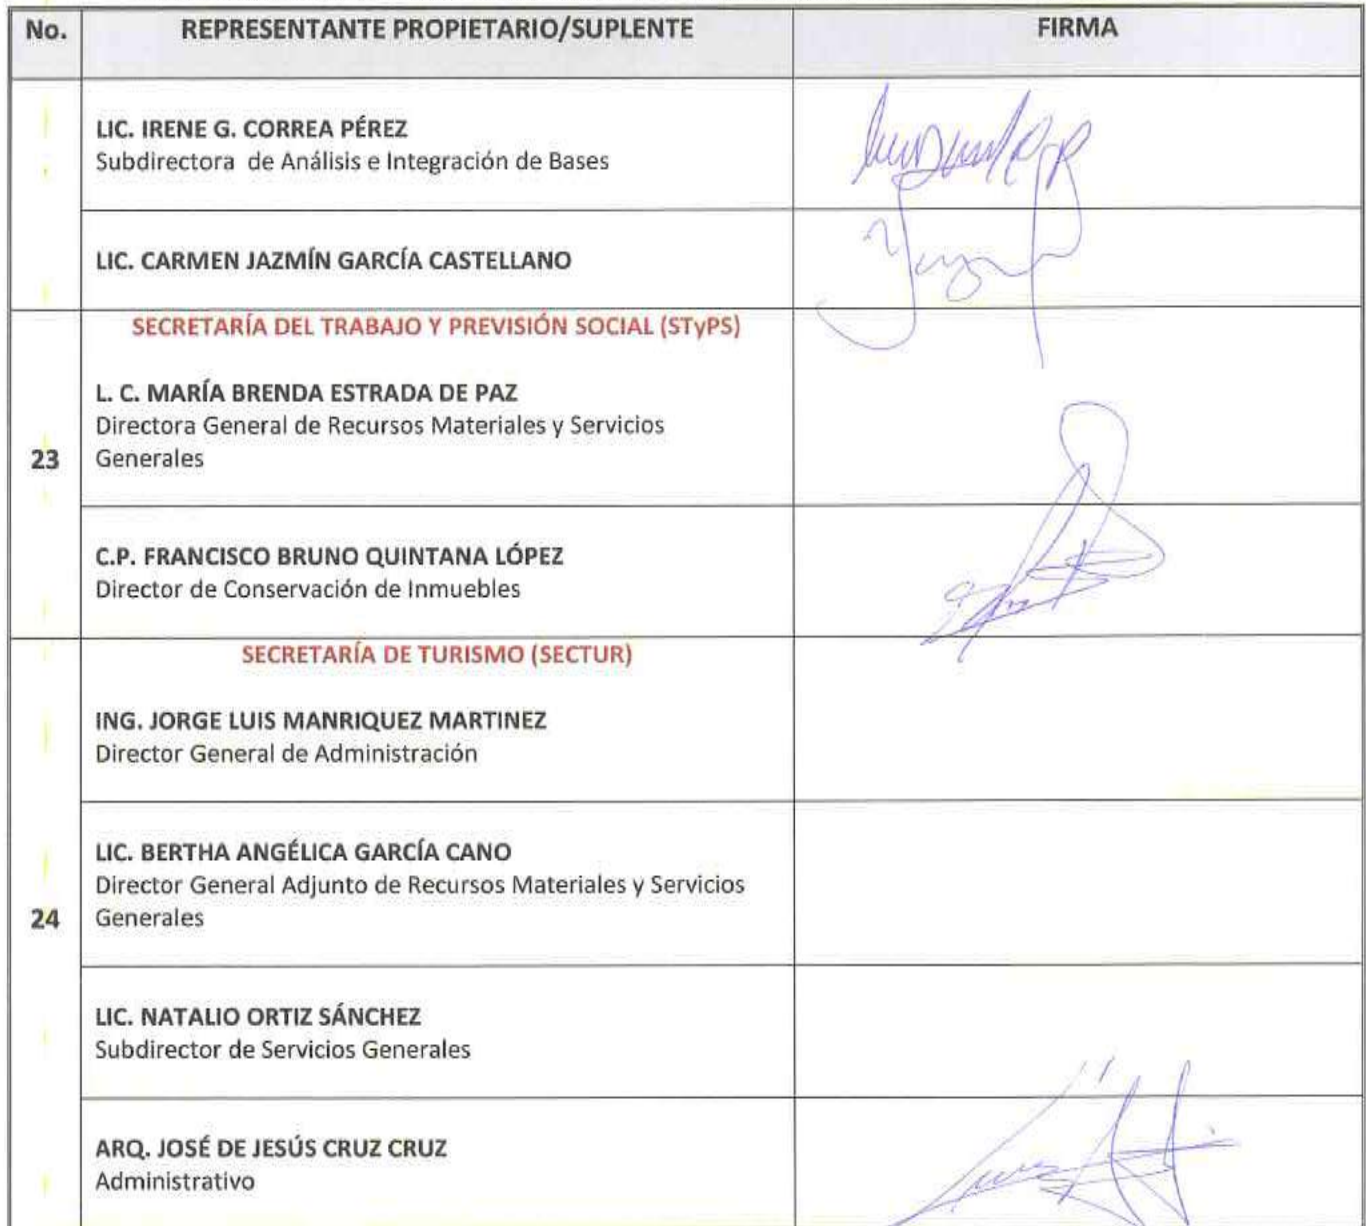 No. REPRESENTANTE PROPIETARIO/SUPLENTE FIRMA
LIC. IRENE G. CORREA PÉREZ
Subdirectora de Análisis e Integración de Bases
LIC. CARMEN JAZMÍN GARCÍA CASTELLANO
SECRETARÍA DEL TRABAJO Y PREVISIÓN SOCIAL (STyPS)
L. C. MARÍA BRENDA ESTRADA DE PAZ
Directora General de Recursos Materiales y Servicios
23 Generales
C.P. FRANCISCO BRUNO QUINTANA LÓPEZ
Director de Conservación de Inmuebles
SECRETARÍA DE TURISMO (SECTUR)
ING. JORGE LUIS MANRIQUEZ MARTINEZ
Director General de Administración
LIC. BERTHA ANGÉLICA GARCÍA CANO
Director General Adjunto de Recursos Materiales y Servicios
24 Generales
LIC. NATALIO ORTIZ SÁNCHEZ
Subdirector de Servicios Generales
ARQ. JOSÉ DE JESÚS CRUZ CRUZ
Administrativo